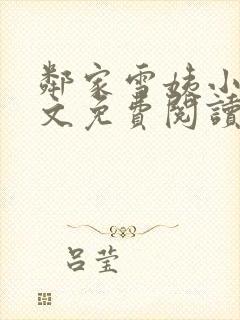 鄰家雪姨小
文免費閱讀
呂莹